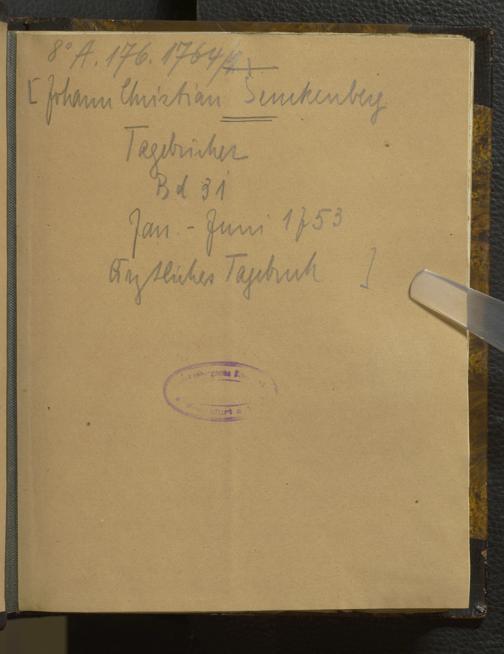 8° A. 176. 1764/
[ Johann Christian Senckenberg
Tagebücher
Bd 31
Jan. - Juni 1753
Ärztliches Tagebuch ]